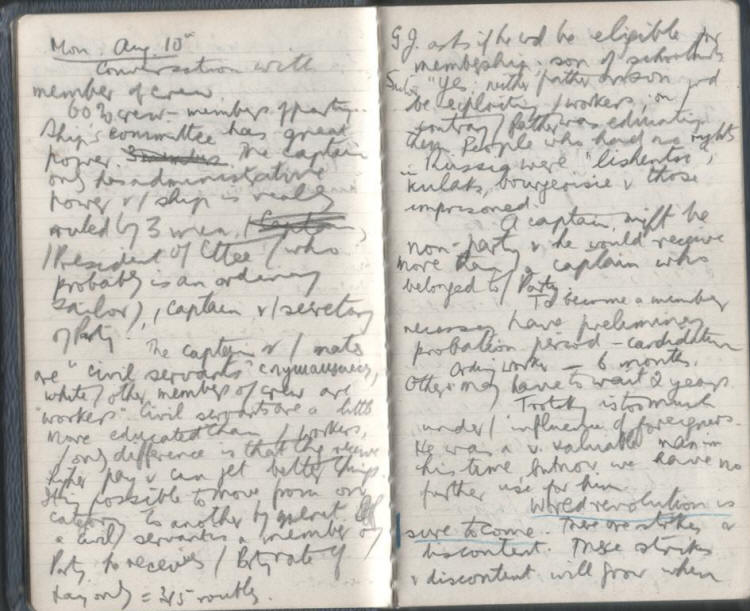 Mon. Aug. 10th
Conversation with
member of crew
60% crew - members of party.
Ship's committee has great
power. The captain
only has administrative
power & / ship is really
ruled by 3 men, / Captain,
/ President of Cttee / who
probably is an ordinary
sailor), / captain & / secretary
of Party
The captain & / mates
are "civil servants" служащий,
while / other members of crew are
"workers". Civil servants are a little
more educated than / workers,
/ only difference is that they receive
higher pay & can get better things.
It is possible to move from one
category to another by
a civil servant is a member of
Party he receives / Party rate of
pay only = 325 roubles.
G.J. asks if he wd be eligible for
membership. son of schoolmaster
"Yes, neither father or son wd
be exploiting / workers, on /
contrary / father was educating
them. People who had no rights
in Russia were "lishentsi",
kulaks, bourgeoisie & those
imprisoned.
A captain might be
non-party & he would receive
more than / a captain who
belonged to / Party.
To become a member
necessary have preliminary
probation period - candidature
Ordinary worker - 6 months.
Others may have to wait 2 years
Trotsky is too much
under / influence of foreigners.
He was a v. valuable man in
his time, but now we have no
further use for him.
World revolution is
sure to come. There are strikes &
discontent. These strikes
& discontent will grow when